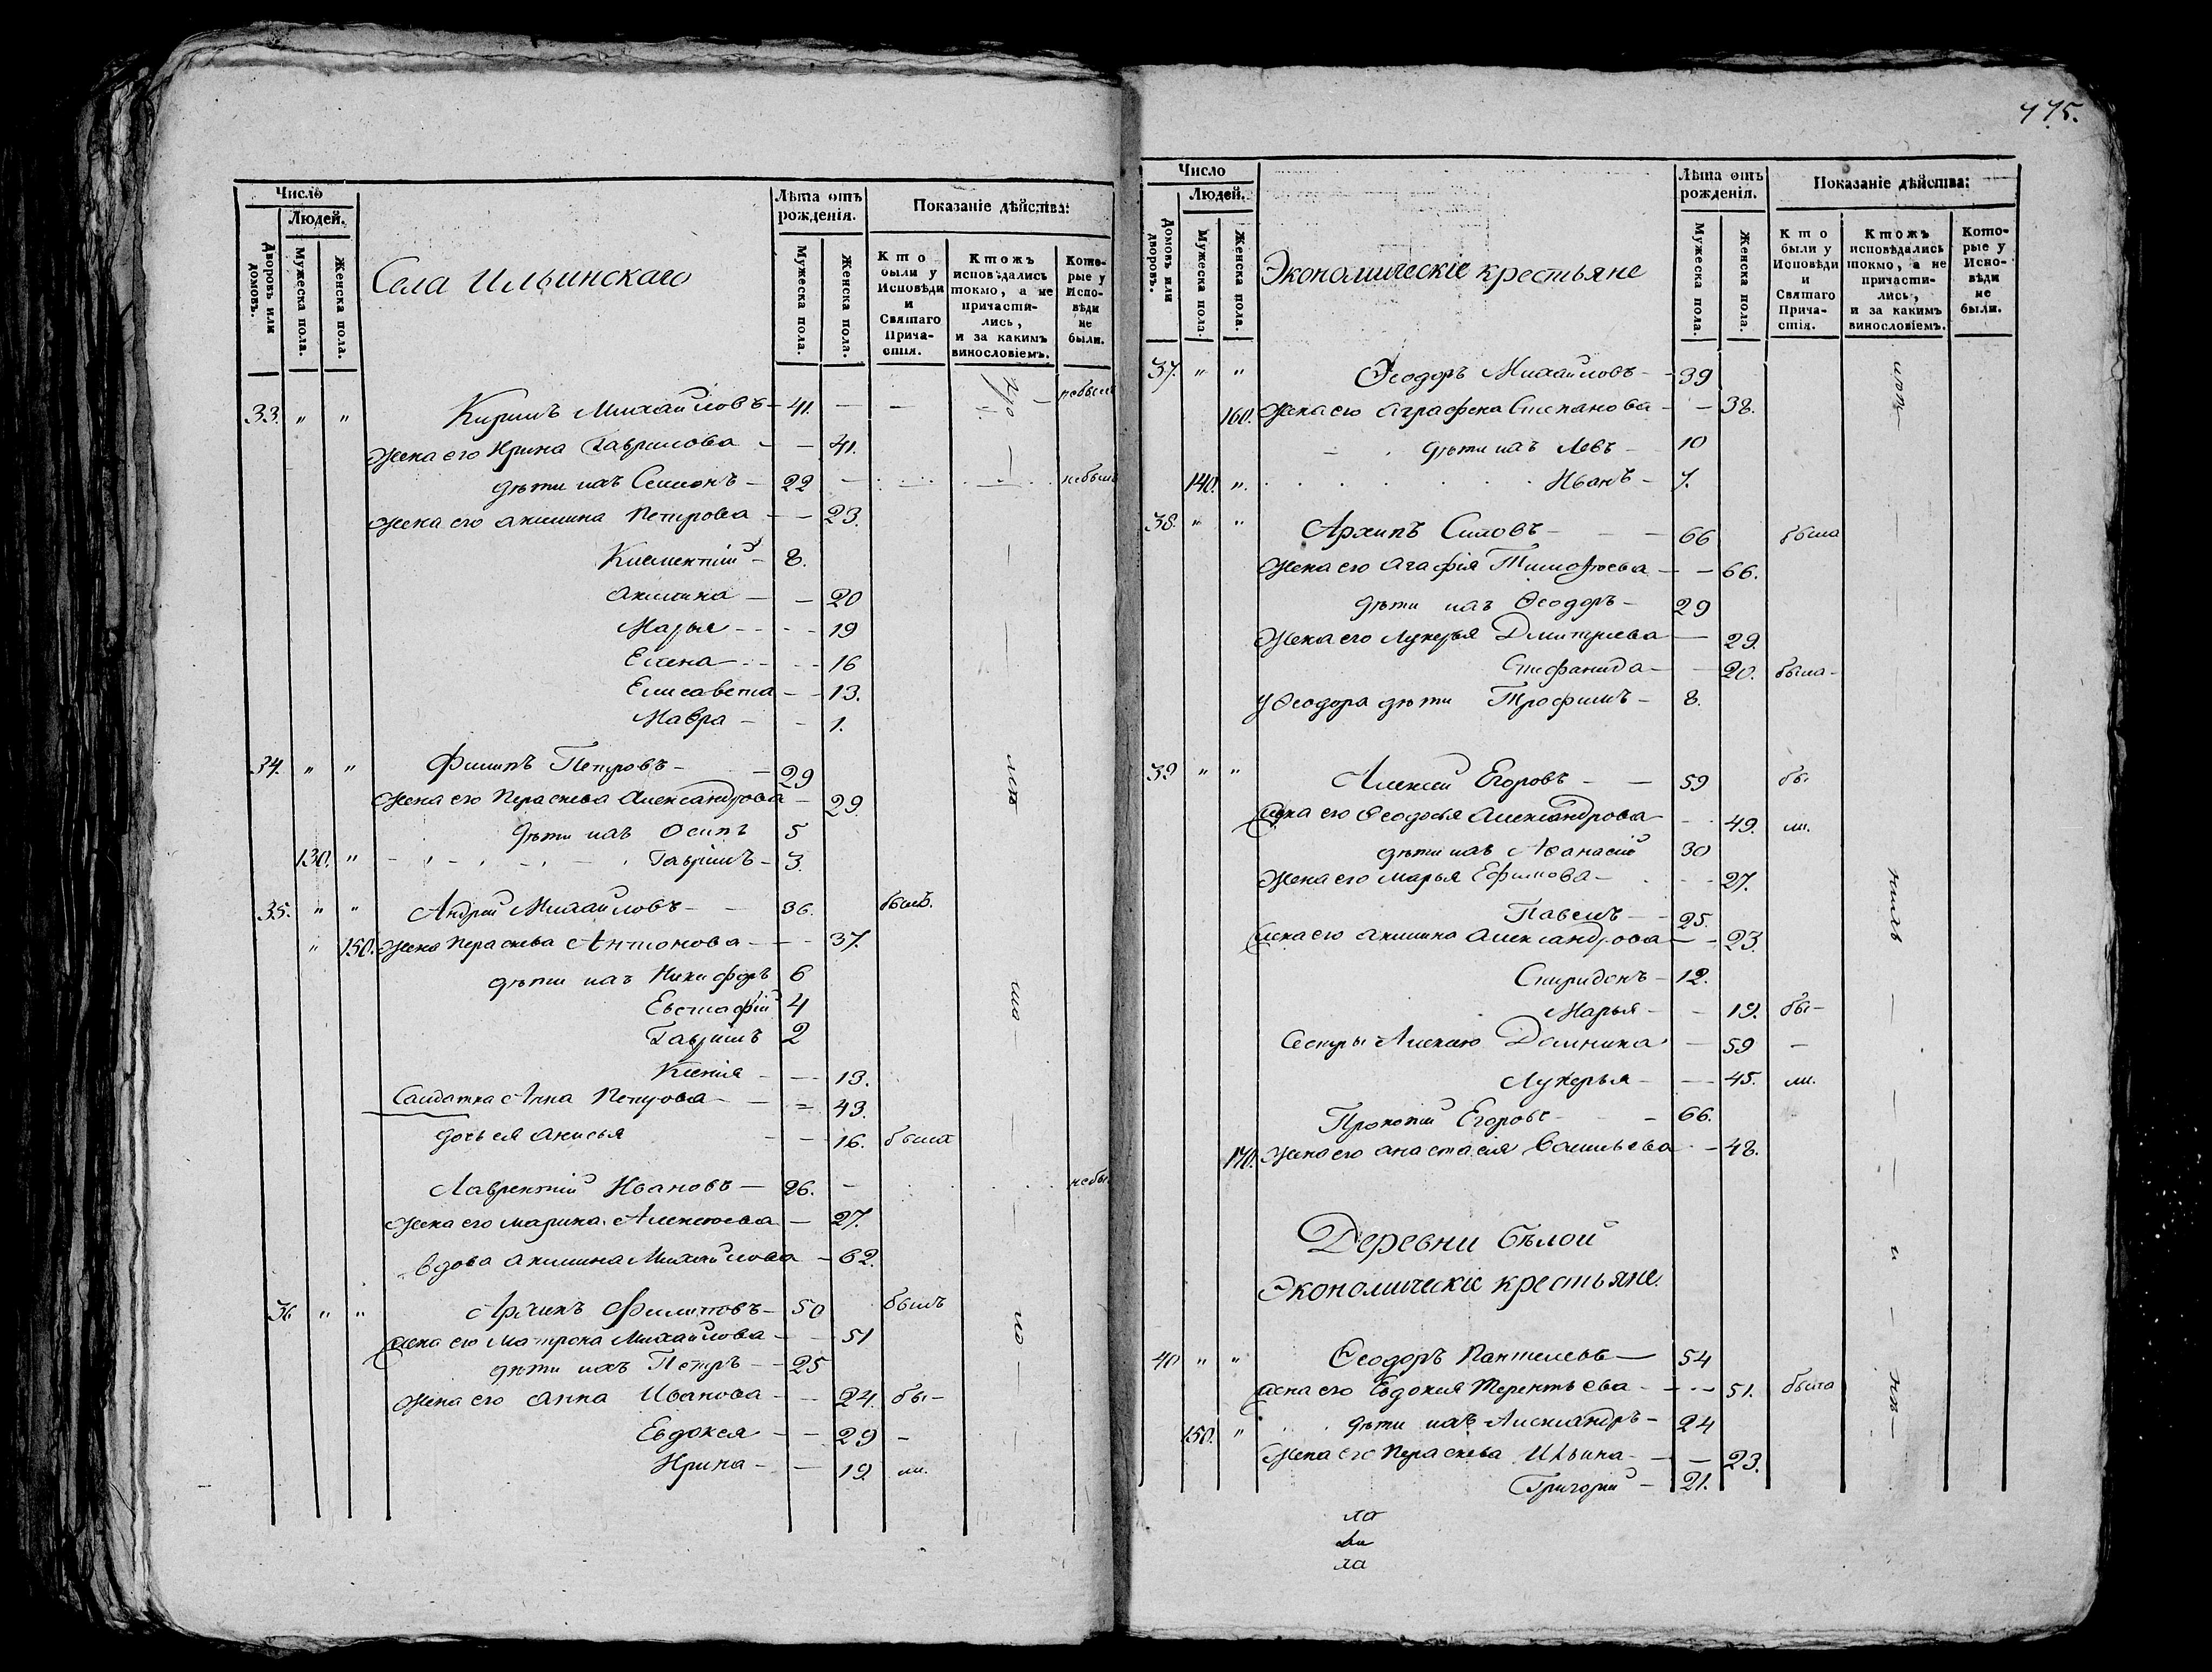 775.
Число
Людей.
Дворовъ или домовъ.
Мужеска пола.
Женска пола.
Села Ильинскаго
Лѣта отъ рожденія.
Мужеска пола.
Женска пола.
Показаніе дѣйства:
Кто были у Исповѣди и Святаго Причастія.
Ктожъ исповѣдались токмо, а не причастились, и за какимъ винословіемъ.
Которые у Исповѣди не были.
33. " " Кирилъ Михайловъ - 41. небылъ
Жена его Ирина Гаврилова - 41.
дѣти ихъ Семионъ - 22 небылъ
Жена его Акилина Петрова - 23.
Климентий - 8.
Акилина - 20
Марья - 19
Елена - 16
Елисавета - 13.
Мавра - 1.
34. " " Филипъ Петровъ - 29
Жена его Параскева Александрова - 29.
дѣти ихъ Осипъ 5
130. " Гаврилъ - 3.
35. " " Андрей Михайловъ - 36. былъ.
" 150. Жена Параскева Антонова - 37.
дѣти ихъ Никифоръ 6
Евстафий 4
Гаврилъ 2
Ксенія - 13.
Салдатка Анна Петрова - 43.
дочь ея Анисья - 16. была
Лаврентий Ивановъ - 26. небы
Жена его Марина Алексѣева - 27.
вдова Акилина Михайлова - 62.
36 " " Архипъ Филиповъ - 50 былъ
Жена его Матрена Михайлова - 51
дѣти ихъ Петръ - 25
Жена его Анна Иванова - 24. бы-
Евдокея - 29 -
Ирина - 19 ли.
Число
Людей.
Домовъ или дворовъ.
Мужеска пола.
Женска пола.
Экономическіе крестьяне
Лѣта отъ рожденія.
Мужеска пола.
Женска пола.
Показаніе дѣйства:
Кто были у Исповѣди и Святаго Причастія.
Ктожъ исповѣдались токмо, а не причастились, и за какимъ винословіемъ.
Которые у Исповѣди не были.
37. " " Ѳеодоръ Михайловъ - 39
160. Жена его Аграфена Степанова - 38.
дѣти ихъ Левъ - 10
140. " Иванъ - 7.
38. " " Архипъ Силовъ - 66 была
Жена его Агафія Тимофѣева - 66.
дѣти ихъ Ѳеодоръ - 29
Жена его Лукерья Дмитриева - 29.
Стефанида - 20. была -
У Ѳеодора дѣти Трофимъ - 8.
39 " " Алексей Егоровъ - 59 бы
Жена его Ѳеодосья Александрова - 49. ли.
дѣти ихъ Аѳанасий 30
Жена его Марья Ефимова - 27.
Павелъ - 25.
Жена его Акилина Александрова - 23.
Спиридонъ - 12.
Марья - 19. бы-
Сестры Домника - 59 -
Лукерья - 45. ли.
Прокопий Егоровъ - 66.
170. Жена его Анастасія Васильева - 48.
Деревни Бѣлой
Экономическіе крестьяне.
40 " " Ѳеодоръ Пантелеевъ - 54
Жена его Евдокея Терентьева - 51. была
150. " дѣти ихъ Александръ - 24
Жена его Параскева Ильина - 23.
Григорий - 21.
ла
ли
ла